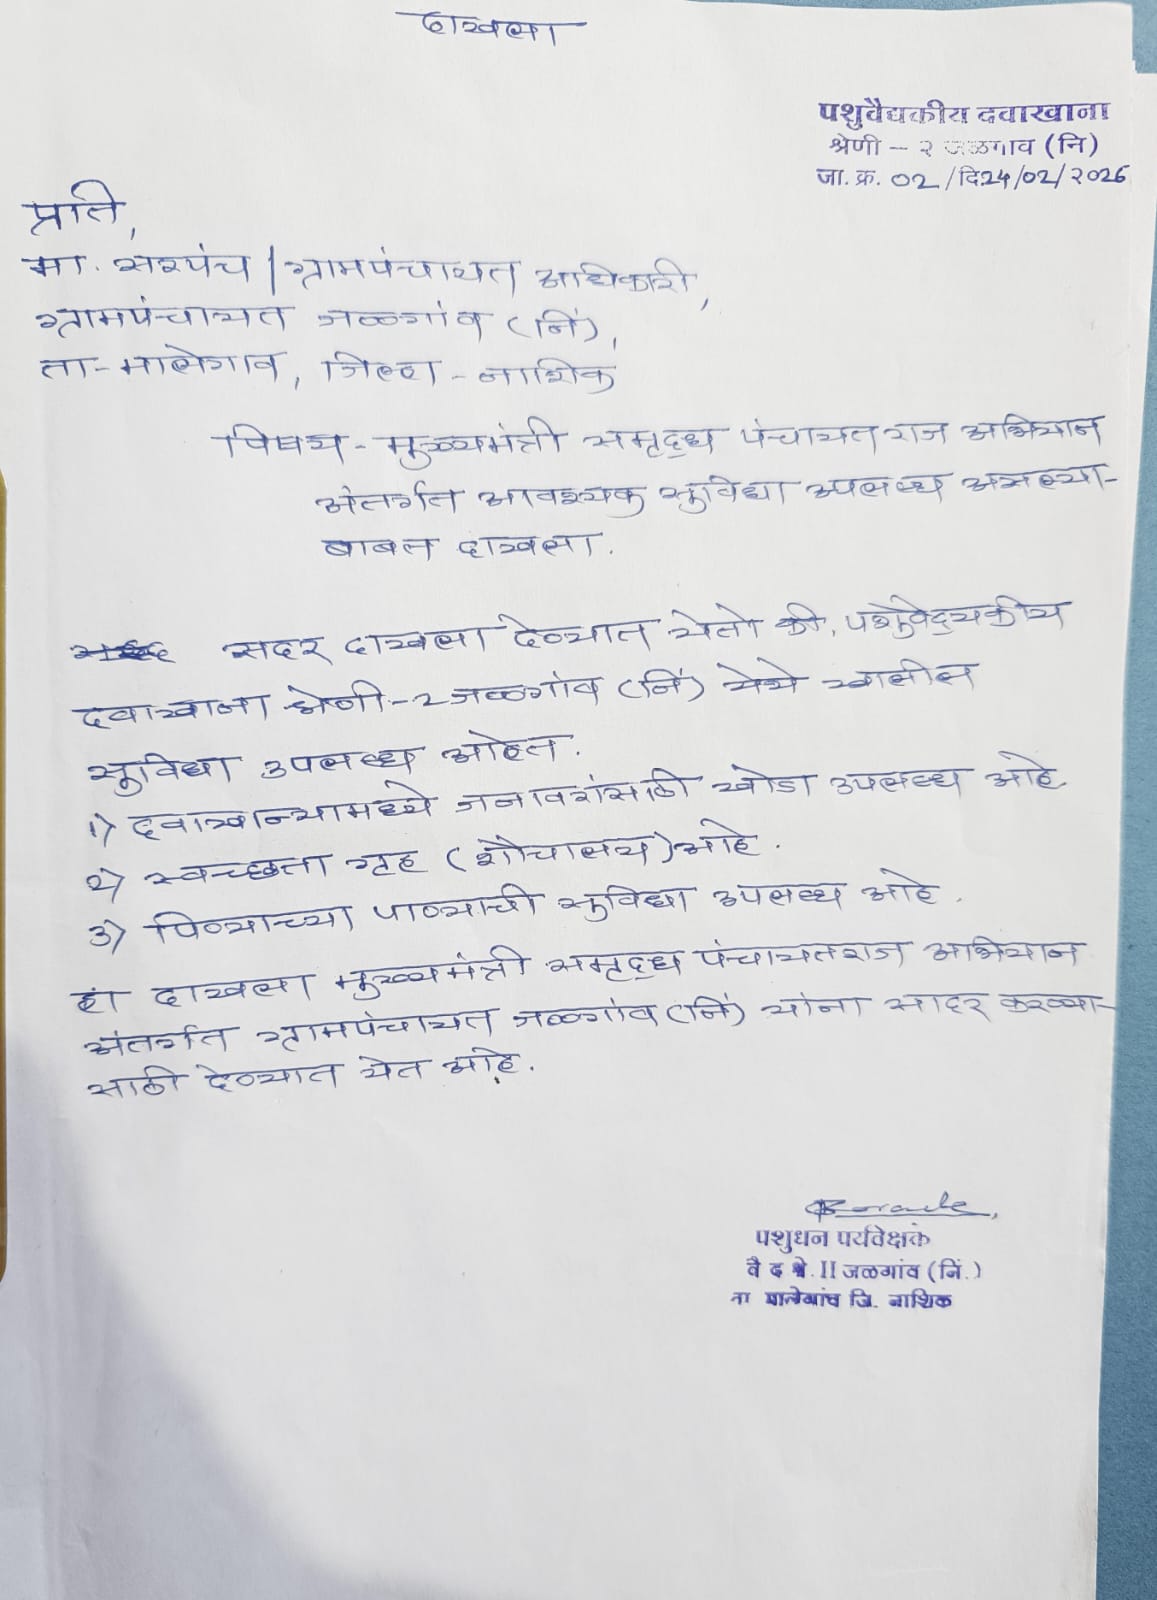 दाखला
पशुवैद्यकीय दवाखाना
श्रेणी - २ जळगाव (नि)
जा. क्र. 02 /दि.24/02/२०26
प्रति,
मा. सरपंच / ग्रामपंचायत अधिकारी,
ग्रामपंचायत जळगांव (निं),
ता-मालेगाव, जिल्हा - नाशिक
विषय - मुख्यमंत्री समृद्ध पंचायतराज अभियान
अंतर्गत आवश्यक सुविधा उपलब्ध असल्या-
बाबत दाखला.
सदर दाखला देण्यात येतो की, पशुवैद्यकीय
दवाखाना श्रेणी-२ जळगांव (निं) येथे खालील
सुविधा उपलब्ध आहेत.
1) दवाखान्यामध्ये जनावरांसाठी खोडा उपलब्ध आहे.
2) स्वच्छता गृह (शौचालय) आहे.
3) पिण्याच्या पाण्याची सुविधा उपलब्ध आहे.
हा दाखला मुख्यमंत्री समृद्ध पंचायतराज अभियान
अंतर्गत ग्रामपंचायत जळगांव (निं) यांना सादर करण्या-
साठी देण्यात येत आहे.
पशुधन पर्यवेक्षक
वै द श्रे. II जळगांव (निं.)
ता मालेगांव जि. नाशिक